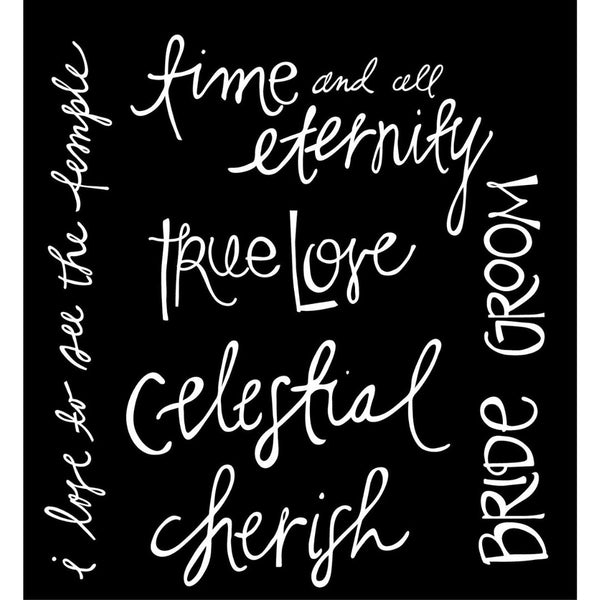 i love to see the temple
time and all
eternity
TRUE LOVE
celestial
cherish
BRIDE
GROOM